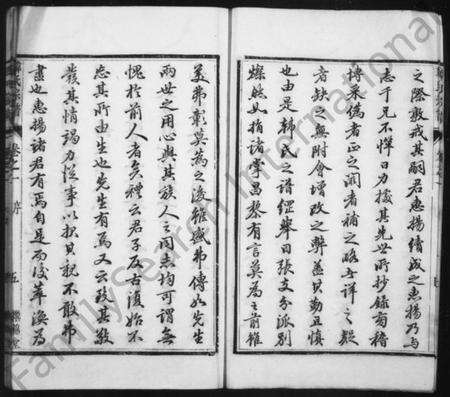 之際敦戒其嗣君惠揚續成之惠揚乃与
志于兄不憚日力據其先世所抄錄旁稽
博采偽者正之闕者補之略者詳之疑
者缺之無附會增改之弊蓋其勤且慎
也由是韓氏之譜綱舉目張支分派別
燦然如指諸掌昌黎有言莫為之前雖
美弗彰莫為之後雖盛弗傳如先生
兩世之用心與其族人之同志均可謂無
愧於前人者矣禮云君子反古復始不
忘其所由生也先生有焉又云致其敬
發其情竭力從事以報其親不敢弗
盡也惠揚諸君有焉自是而後萃渙為
卷之一 序 五
FamilySearch International